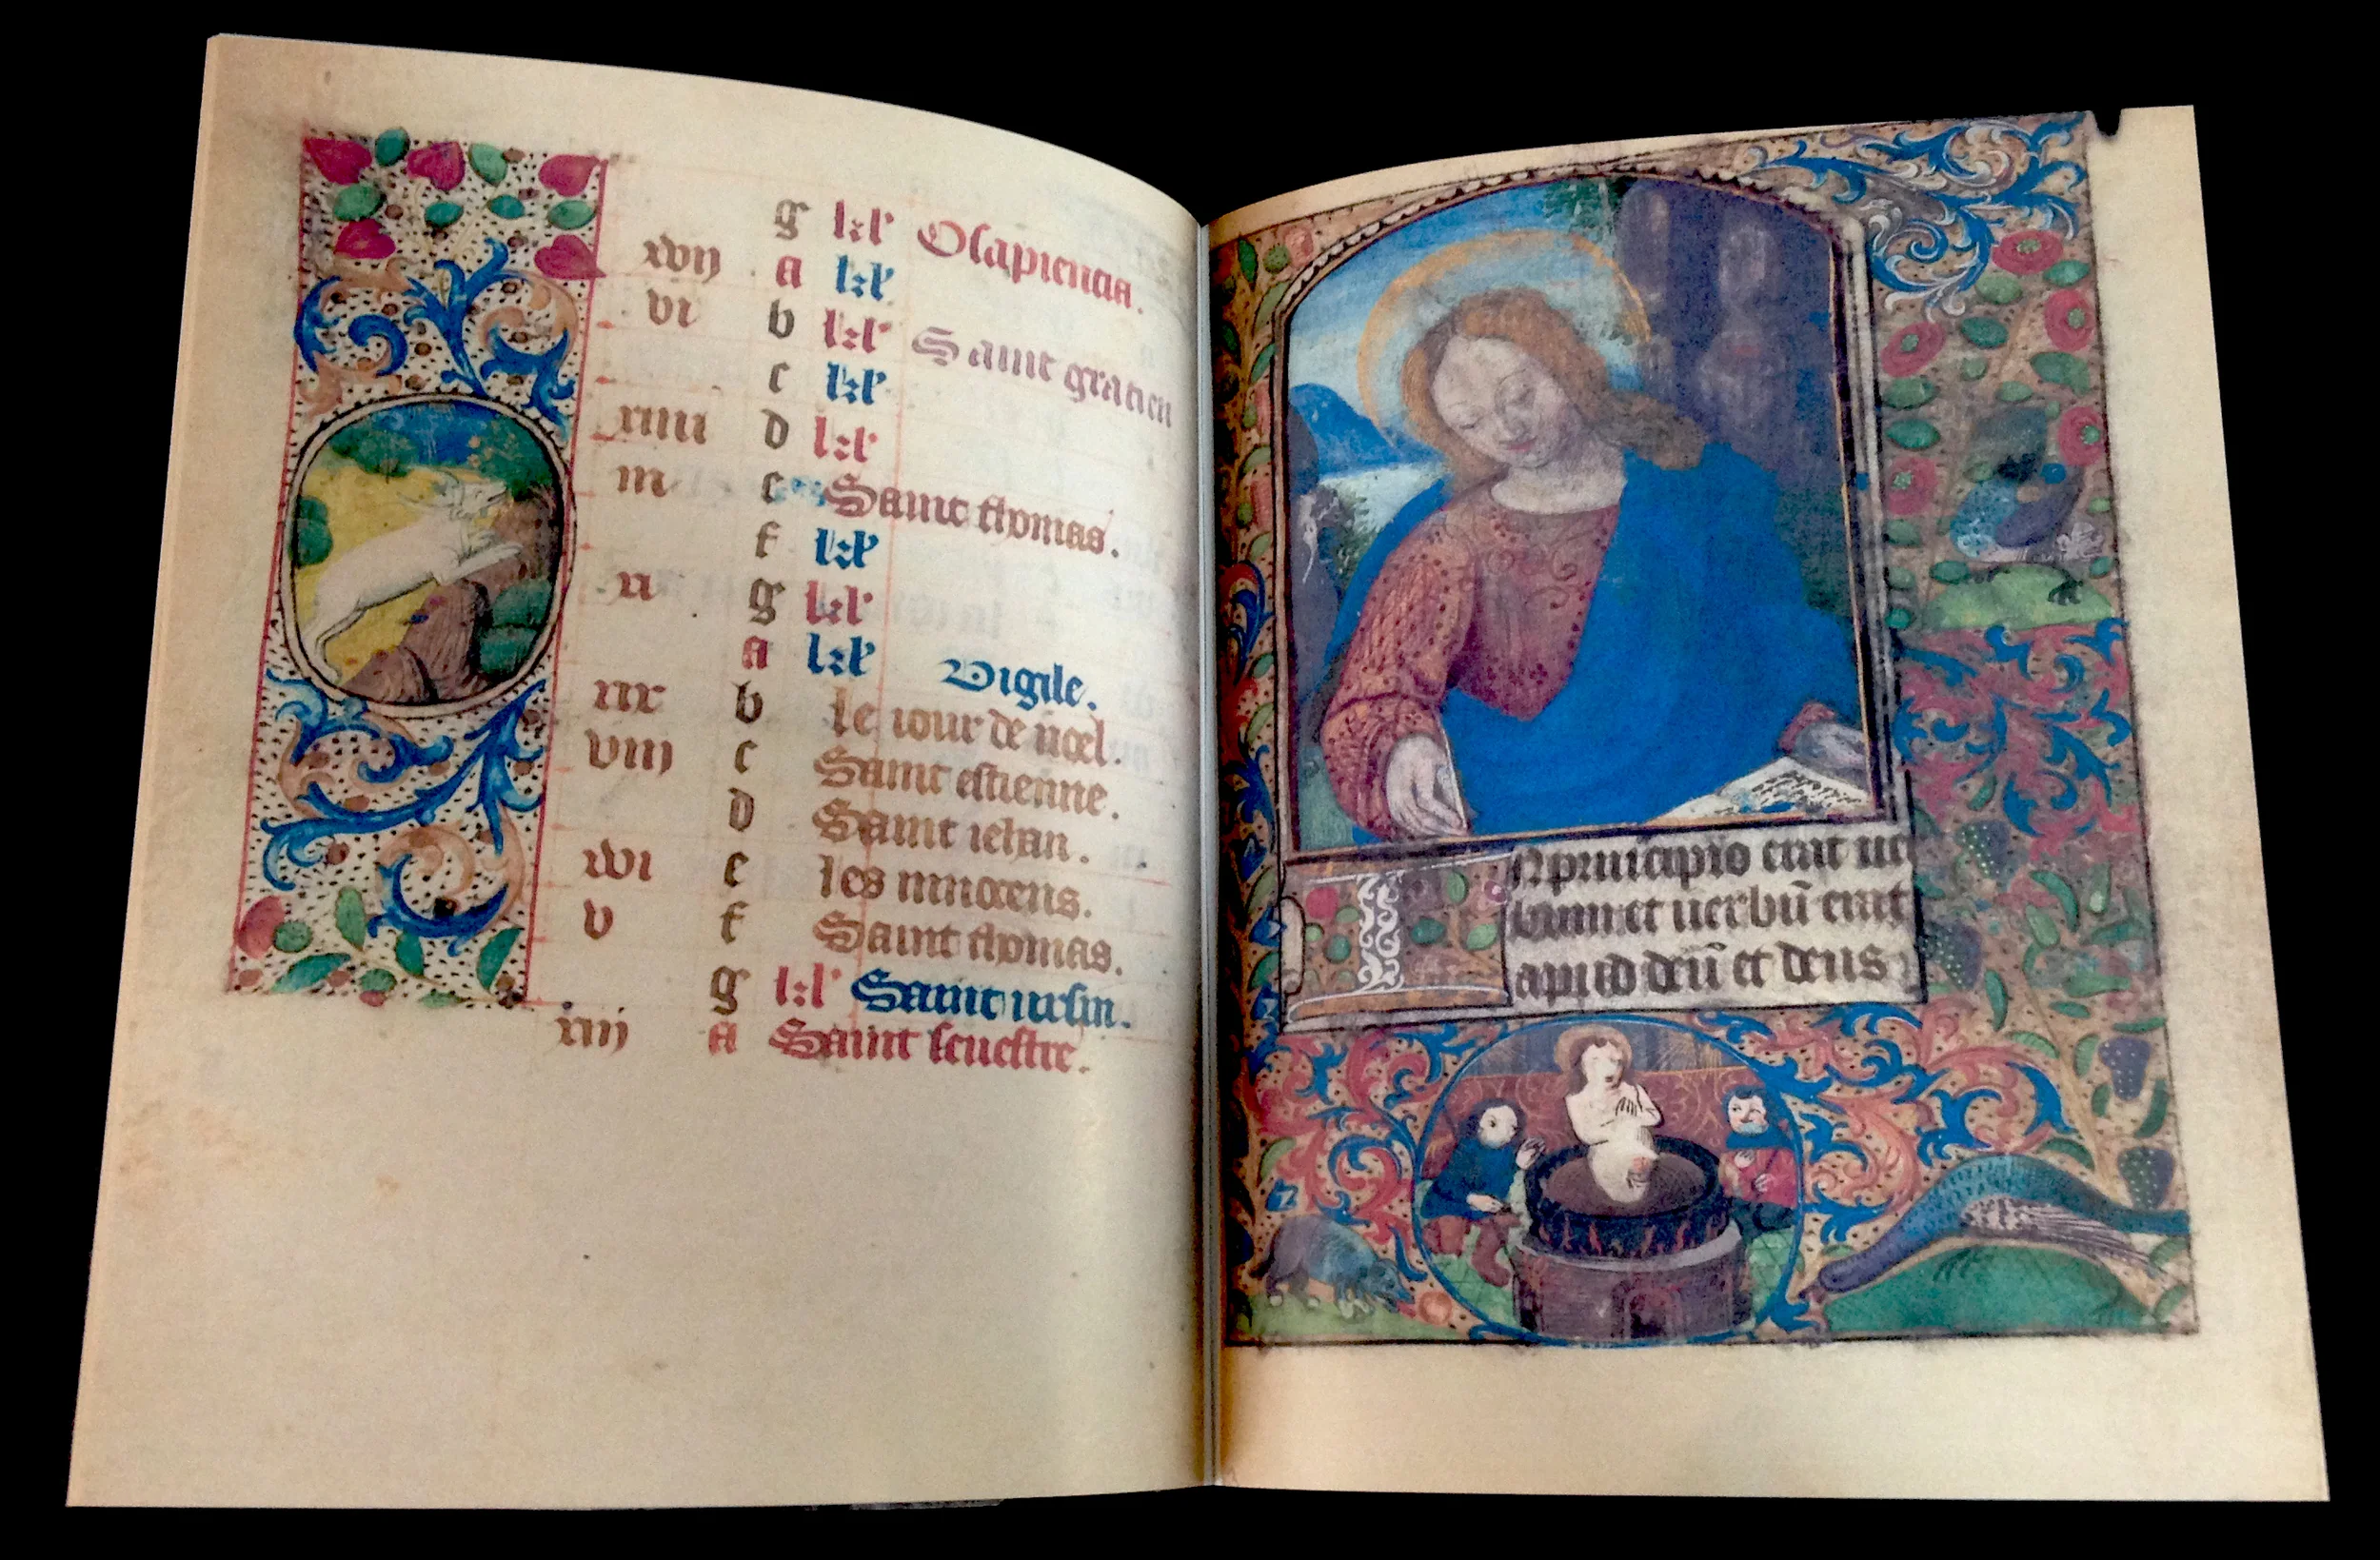 g kl' Osapiencia.
xvij a kl'
vi b kl' Saint gracien
c kl'
xiiii d kl'
iii e Saint thomas.
f kl'
xi g kl'
a kl' Vigile.
xix b le iour de noel.
viii c Saint estienne.
d Saint iehan.
xvi e les innocens.
v f Saint thomas.
g kl' Saint ursin.
xiij a Saint seuestre.
IN principio erat uer
bum et uerbū erat
apud deū et deus